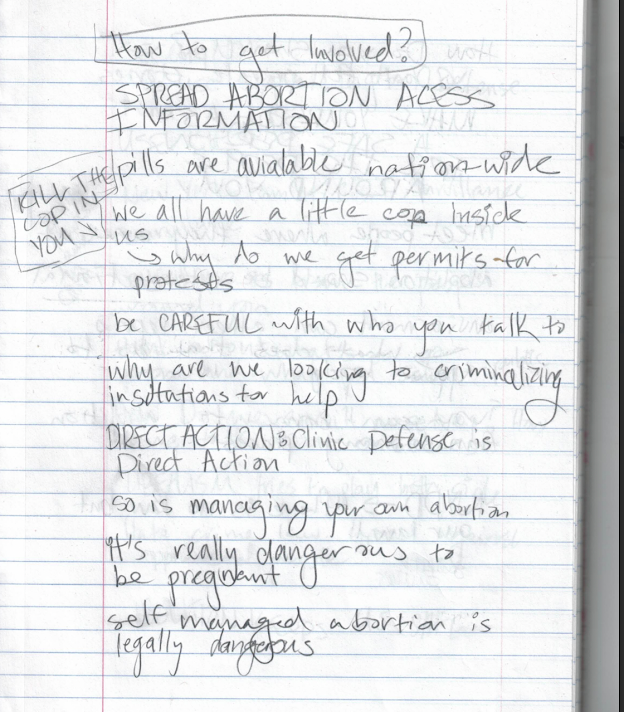 How to get Involved?
SPREAD ABORTION ACESS
INFORMATION
pills are avialable nation-wide
KILL THE
COP IN
YOU
we all have a little cop Inside
us
why do we get permits for
protests
be CAREFUL with who you talk to
why are we looking to criminalizing
insitutions for help
DIRECT ACTION: Clinic Defense is
Direct Action
so is managing your own abortion
it's really dangerous to
be pregnant
self managed abortion is
legally dangerous